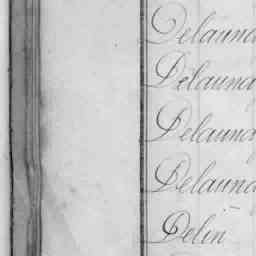 Delauna
Delaunay
Delaunay
Delauna
Delin